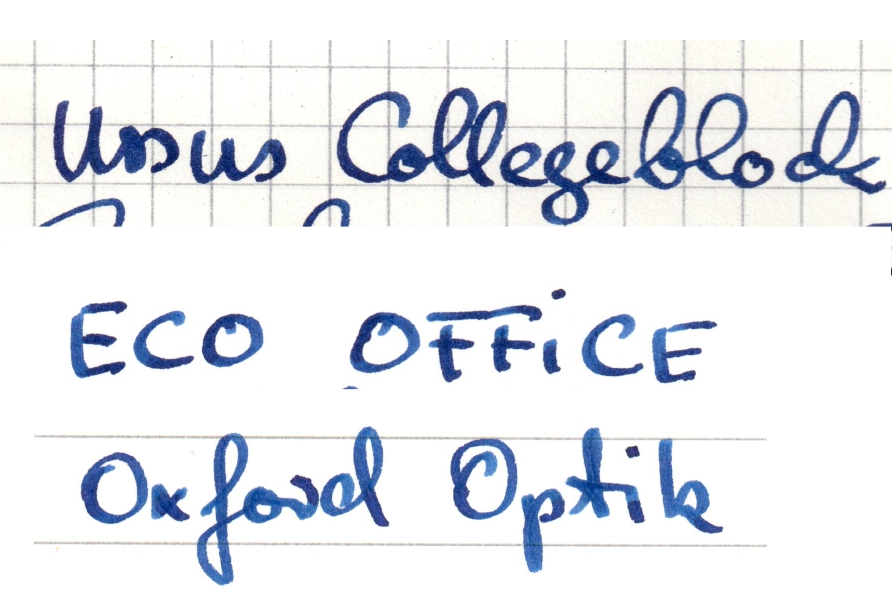 Ursus Collegeblock
ECO OFFiCE
Oxford Optik